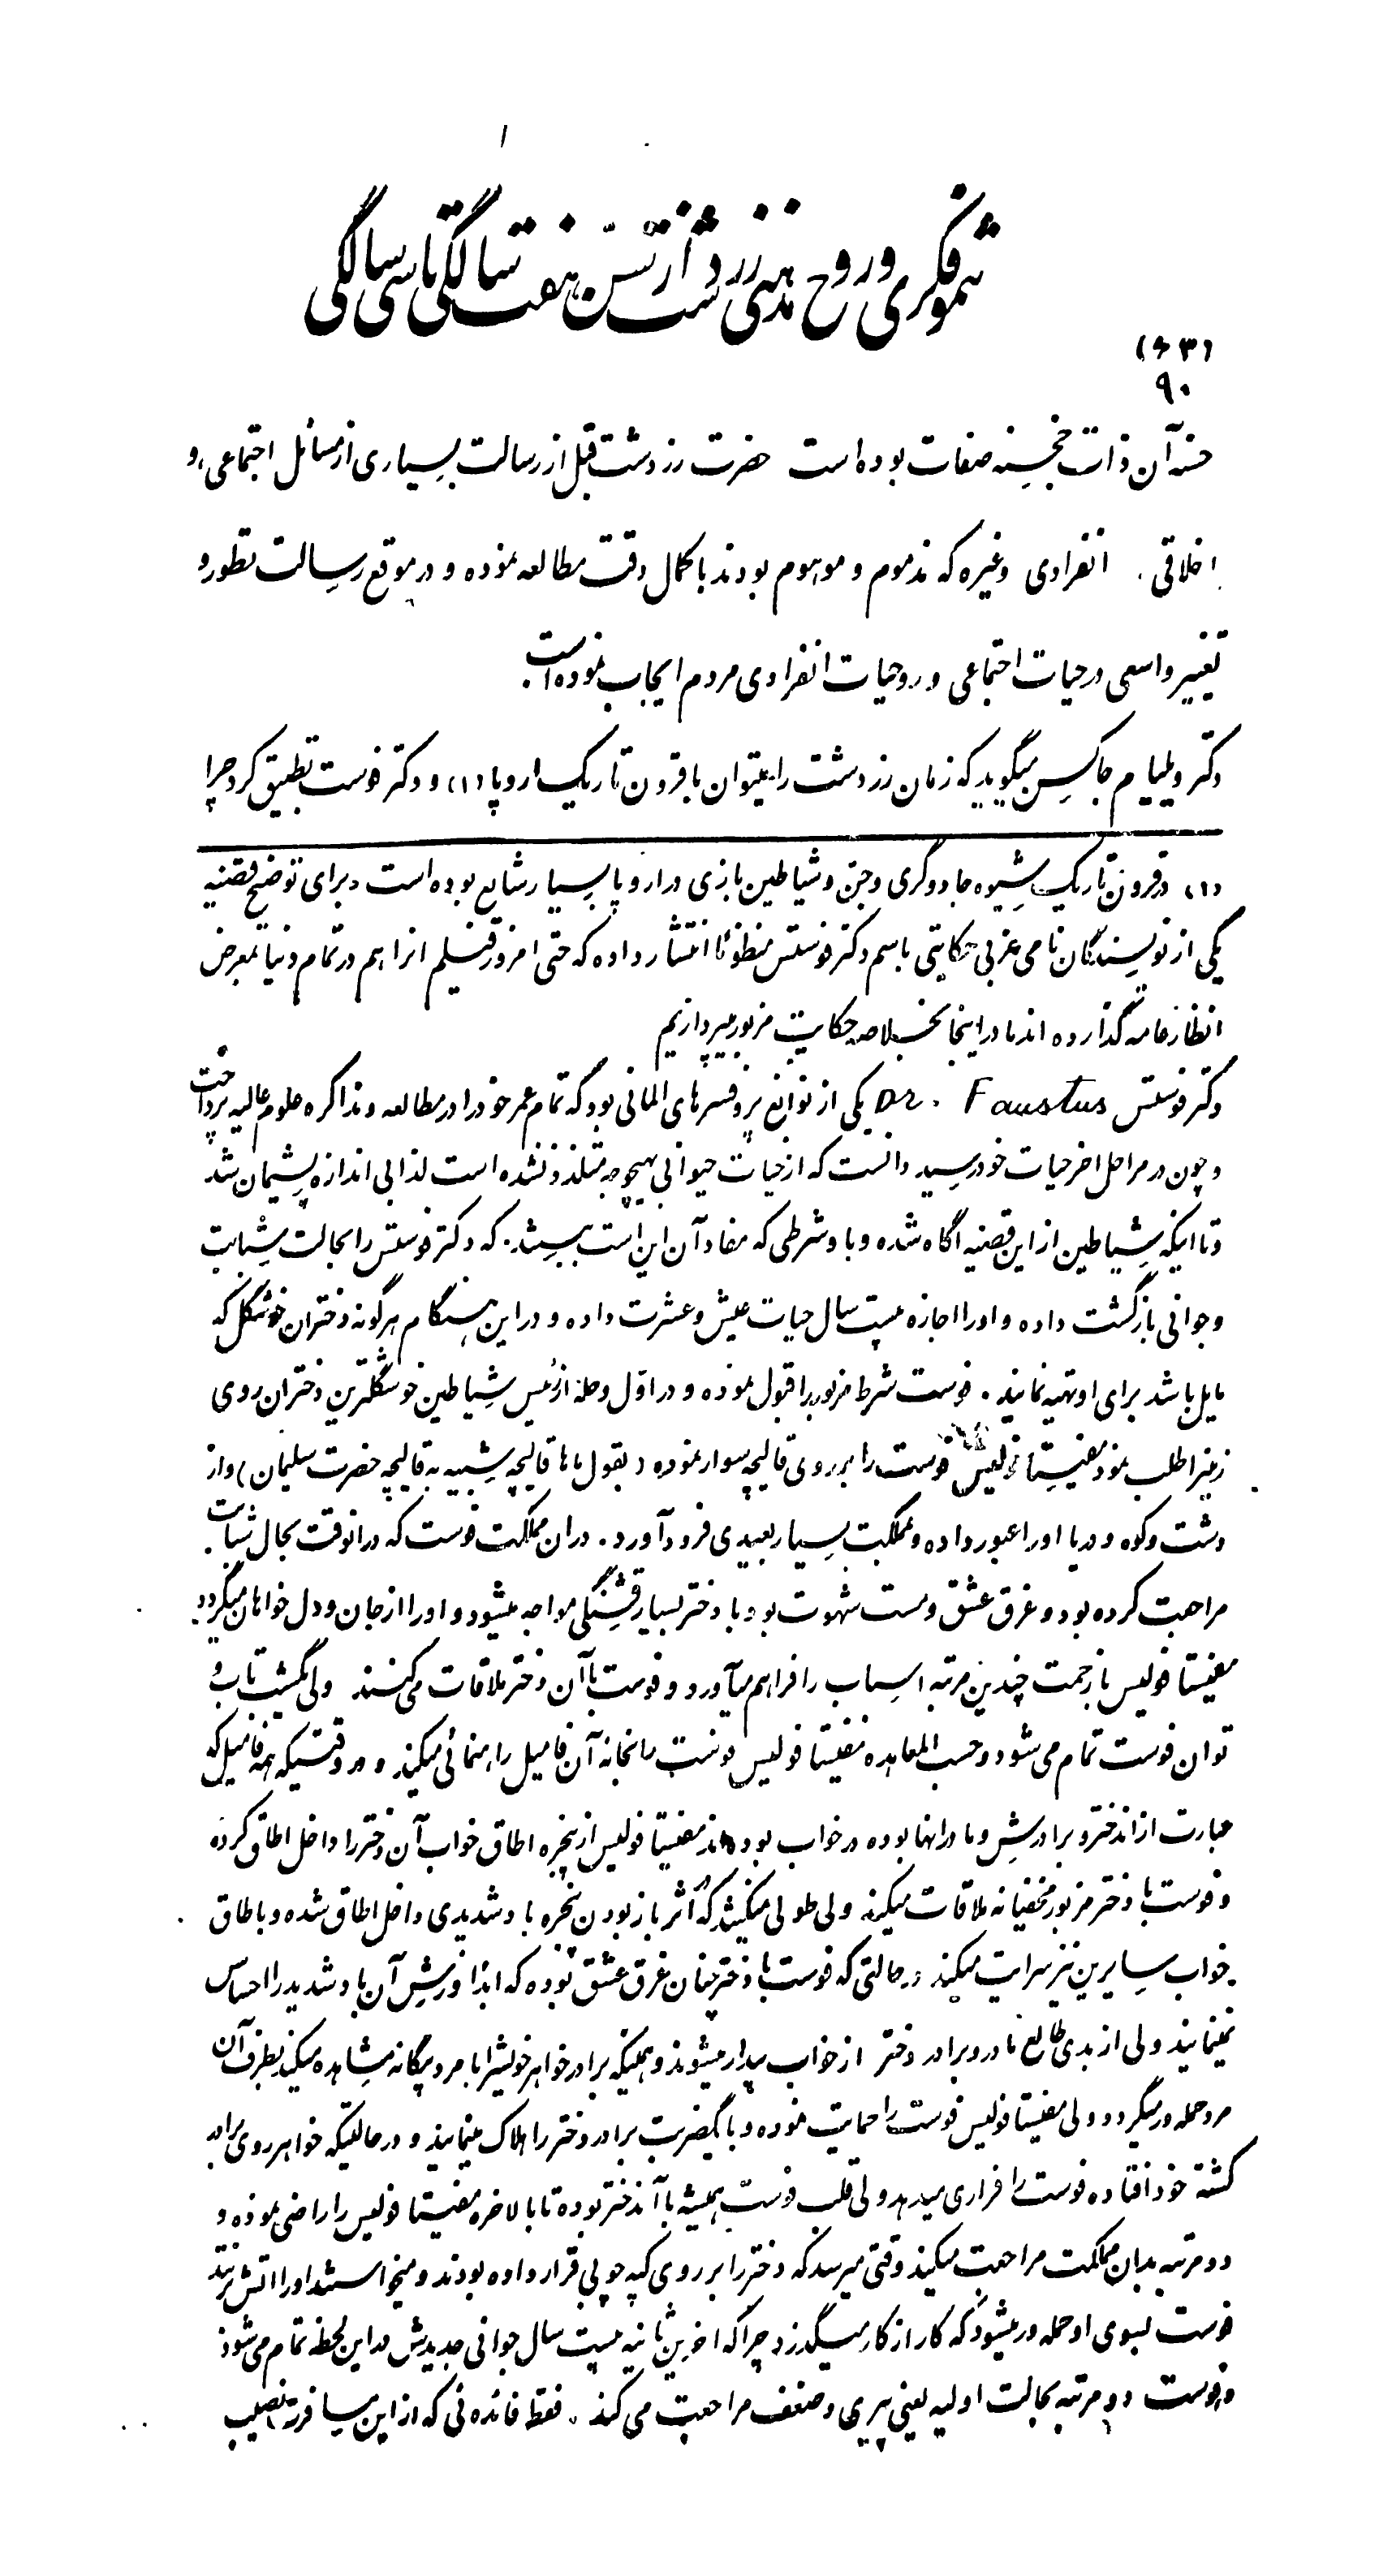 ۱
نمو فکری و روح مذهبی زردشت از سن هفت سالگی تا سی سالگی
(۶۳)
۹۰
حسنه آن ذات خجسته صفات بوده است حضرت زردشت قبل از رسالت بسیاری از مسائل اجتماعی، و
اخلاقی . انفرادی وغیره که مذموم و موهوم بودند با کمال دقت مطالعه نموده و در موقع رسالت تطور و
تغییر واسعی در حیات اجتماعی و روحیات انفرادی مردم ایجاب نموده است .
دکتر ویلیام جاکسن میگوید که زمان زردشت را میتوان با قرون تاریک اروپا (۱) و دکتر فوست تطبیق کرد چرا
(۱) در قرون تاریک شیوه جادوگری و جن و شیاطین بازی در اروپا بسیار شایع بوده است و برای توضیح قضیه
یکی از نویسندگان نامی غربی حکایتی باسم دکتر فوستس منظوماً انتشار داده که حتی امروز فیلم انرا هم در تمام دنیا بمعرض
انظار عامه گذارده اند ما در اینجا بخلاصه حکایت مزبور میپردازیم
دکتر فوستس Dr. Faustus یکی از نوابغ پروفسرهای المانی بود که تمام عمر خود را در مطالعه و مذاکره علوم عالیه پرداخت
و چون در مراحل اخر حیات خود رسید دانست که از حیات حیوانی بهیچوجه متلذذ نشده است لذا بی اندازه پشیمان شد
و تا اینکه شیاطین از این قضیه اگاه شده و با و شرطی که مفاد آن این است ببستند . که دکتر فوستس را بحالت شبابت
و جوانی بازگشت داده و اورا اجازه بیست سال حیات عیش و عشرت داده و در این هنگام هرگونه دختران خوشگل که
مایل باشد برای او تهیه نمایند . فوست شرط مزبور را قبول نموده و در اول وحله از رئیس شیاطین خوشگلترین دختران روی
زمین را طلب نمود مفیستا فولیس فوست را بر روی قالیچه سوار نموده (بقول ماها قالیچه شبیه به قالیچه حضرت سلیمان) و از
دشت و کوه و دریا اورا عبور داده و مملکت بسیار بعیدی فرود آورد . دران مملکت فوست که درانوقت بحال شبابت
مراجعت کرده بود و غرق عشق و مست شهوت بود با دختر بسیار قشنگی مواجه میشود و اورا از جان و دل خواهان میگردد .
مفیستا فولیس با زحمت چندین مرتبه اسباب را فراهم میآورد و فوست با آن دختر ملاقات می کند ولی یکشب تاب و
توان فوست تمام می شود و حسب المعاهده مفیستا فولیس فوست را بخانه آن فامیل راهنمائی میکند و در وقتیکه همه فامیل که
عبارت از اندختر و برادرش و مادر انها بوده در خواب بوده اند مفیستا فولیس از پنجره اطاق خواب آن دختر را داخل اطاق کرده
و فوست با دختر مزبور مخفیانه ملاقات میکند ولی طولی نمیکشد که اثر باز بودن پنجره باد شدیدی داخل اطاق شده و باطاق
خواب سایرین نیز سرایت میکند در حالتی که فوست با دختر چنان غرق عشق بوده که ابدا ورش آن باد شدید را احساس
نمینمایند ولی از بدی طالع مادر و برادر دختر از خواب بیدار میشوند و همینکه برادر خواهر خویش را با مرد بیگانه مشاهده میکند بطرف آن
مرد حمله ور میگردد و ولی مفیستا فولیس فوست را حمایت نموده و با یکضربت برادر دختر را هلاک مینماید و در حالتیکه خواهر روی برادر
کشته خود افتاده فوست را فراری میدهد ولی قلب فوست همیشه با آندختر بوده تا بالاخره مفیستا فولیس را راضی نموده و
دو مرتبه بدان مملکت مراجعت میکند وقتی میرسد که دختر را بر روی کپه چوبی قرار داده بودند و میخواستند اورا اتش زنند
فوست بسوی او حمله ور میشود که کار از کار میگذرد چرا که اخرین ثانیه بیست سال جوانی جدیدش در این لحظه تمام می شود
و فوست دو مرتبه بحالت اولیه یعنی پیری و ضعف مراجعت می کند . فقط فائده ئی که از این مسافرت نصیب